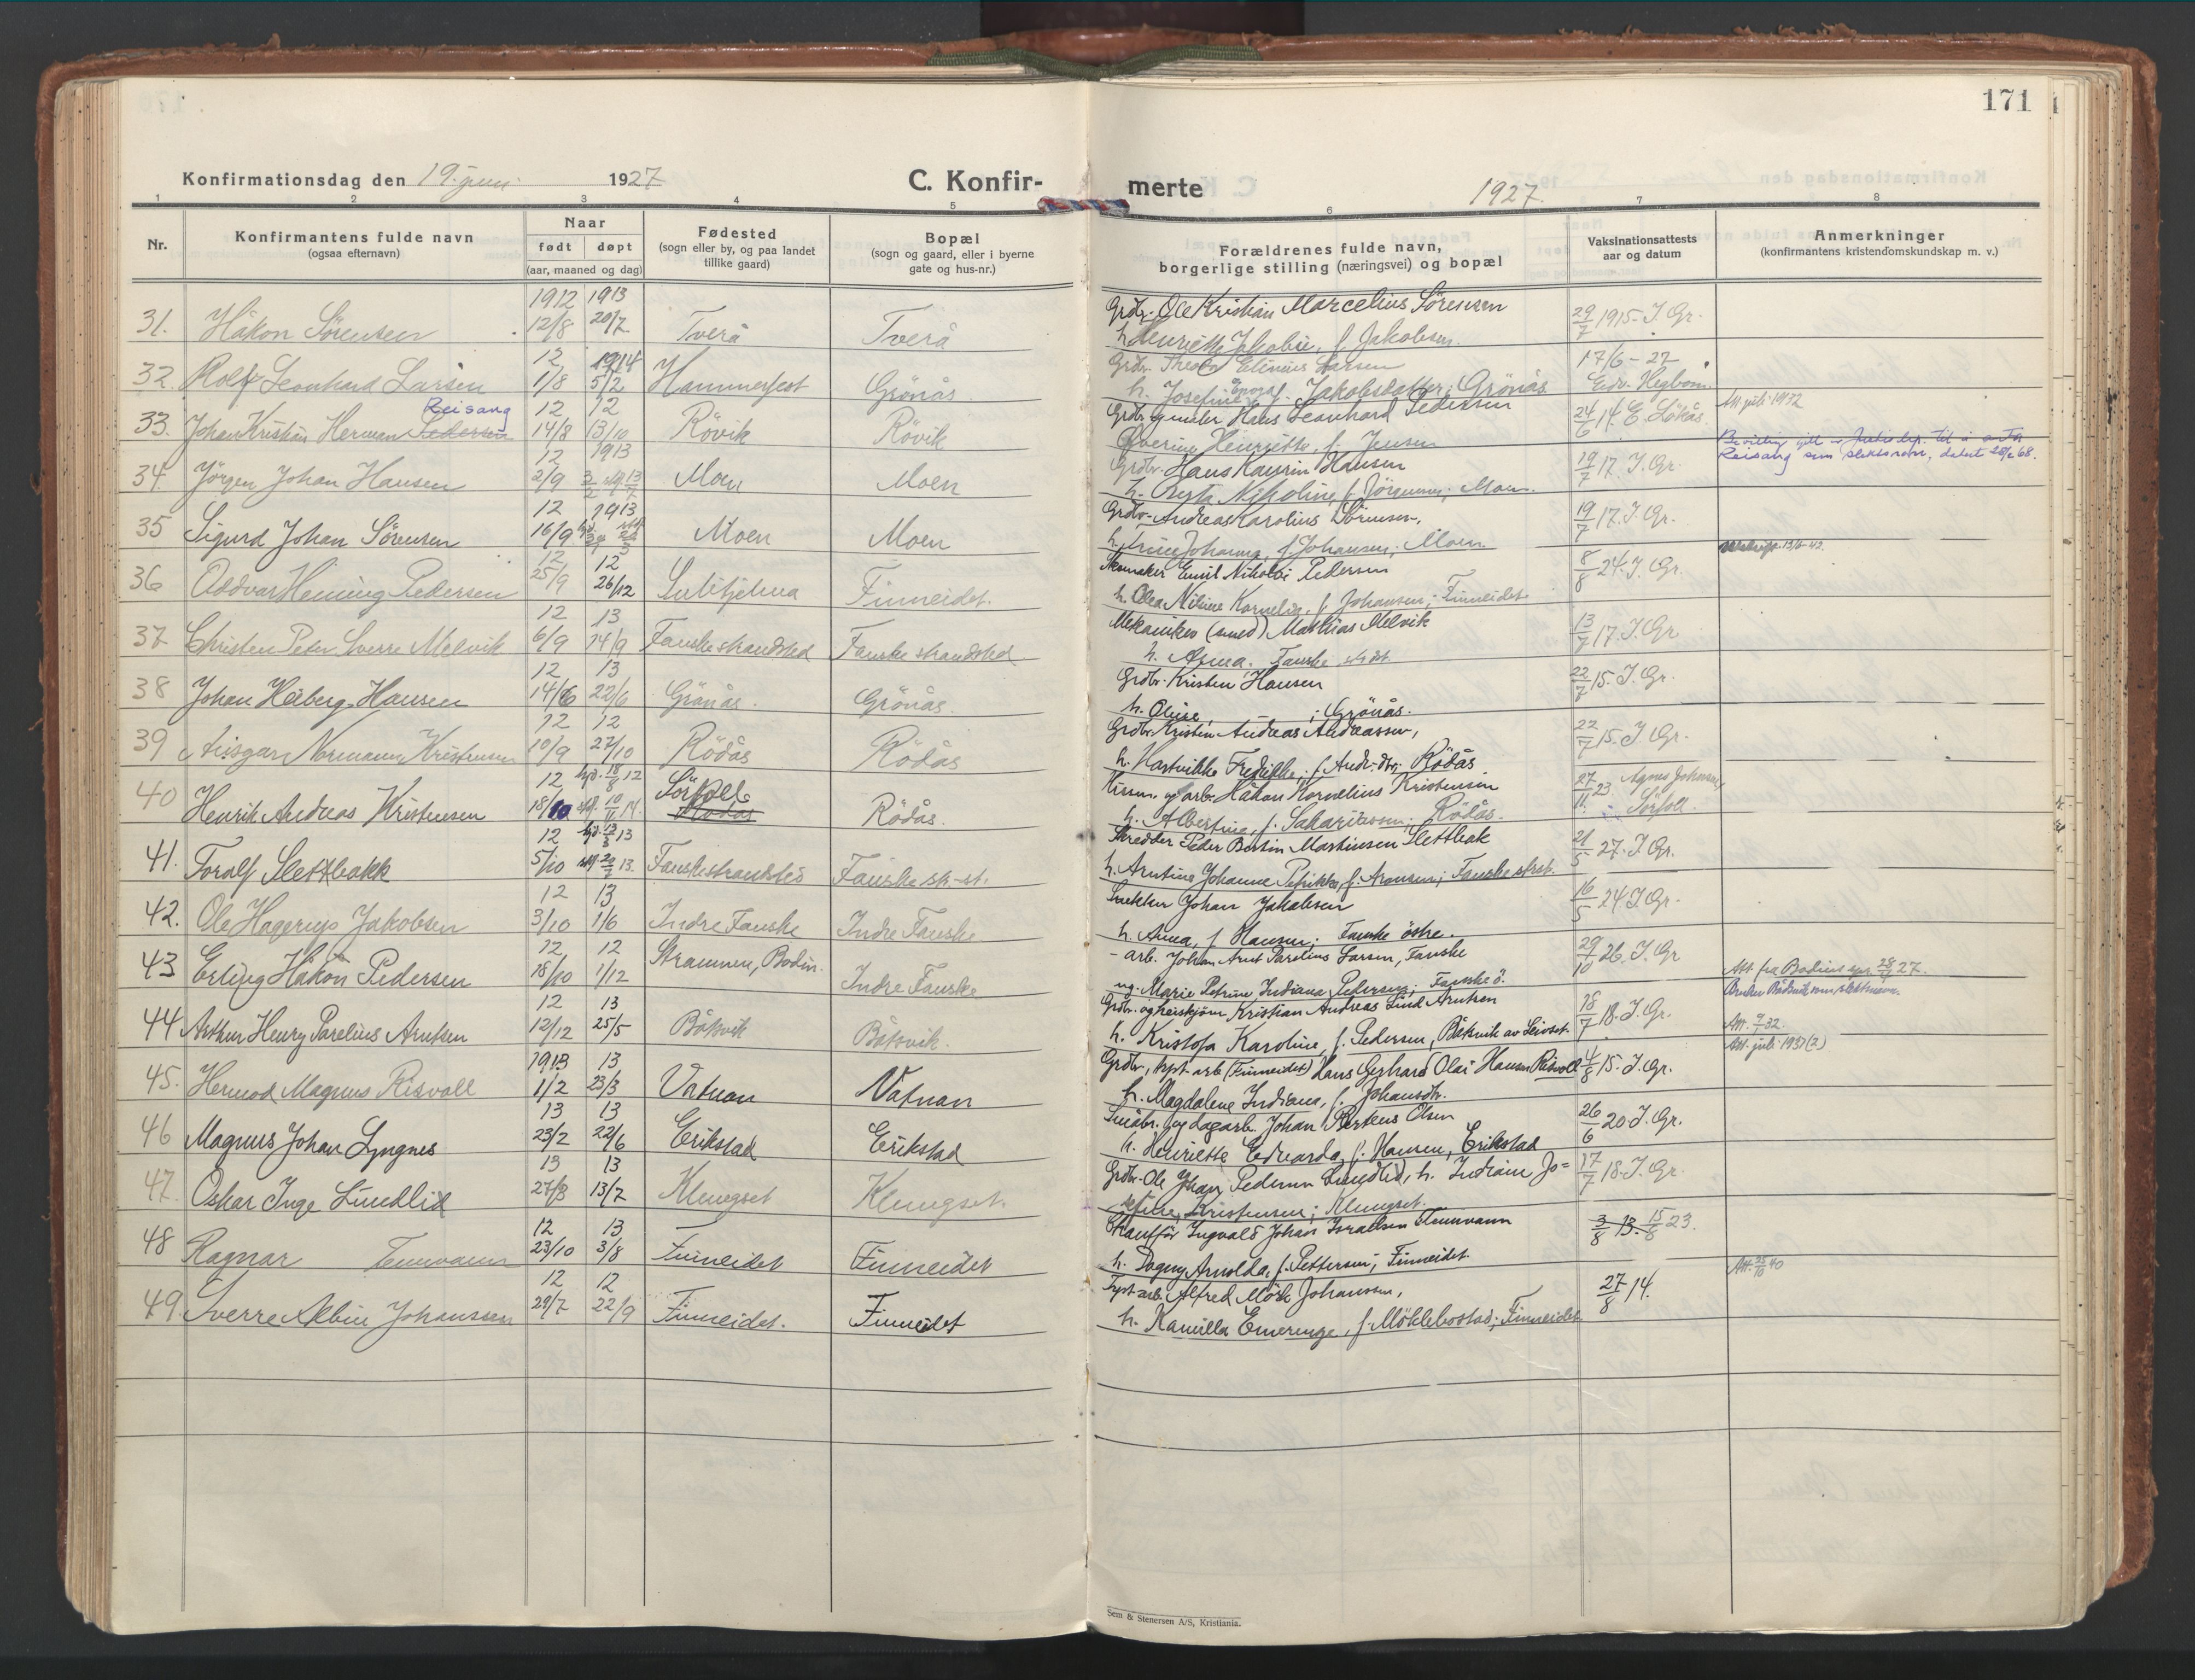 171
Konfirmationsdag den 19. juni 1927
C. Konfir-
merte 1927.
1 2 3 4 5 6 7 8
Nr.
Konfirmantens fulde navn
(ogsaa efternavn)
Naar
født døpt
(aar, maaned og dag)
Fødested
(sogn eller by, og paa landet
tillike gaard)
Bopæl
(sogn og gaard, eller i byerne
gate og hus-nr.)
Forældrenes fulde navn,
borgerlige stilling (næringsvei) og bopæl
Vaksinationsattests
aar og datum
Anmerkninger
(konfirmantens kristendomskundskap m. v.)
1912 1913 Grdbr. Ole Kristian Marcelius Sörensen
31. Håkon Sörensen 12/8 20/7 Tverå Tverå h. Henriette Jakobine, f. Jakobsen. 29/7 1915. J. Gr.
12 1914 Grdbr. Theodor Elinius Larsen 17/6-27
32. Rolf Leonhard Larsen 1/8 5/2 Hammerfest Grönås h. Josefine f. Jakobsdatter; Grönås Eidv. Hegbom.
Reisang 12 12 Grdbr. gmler Hans Leonhard Pedersen Att. juli 1932
33. Johan Kristian Herman Pedersen 14/8 13/10 Rövik Rövik Henriette, f. Jensen 24/6 14. E. Lökås.
12 1913 Grdbr. Hans Kaurin Hansen Reisang som slektsnavn, datert 28/2 68.
34. Jörgen Johan Hansen 2/9 Moen Moen h. Berta Nikoline, f. Jörgensen; Moen. 19/7 17. J. Gr.
12 1913 Grdbr. Andreas Karolius Sörensen,
35 Sigurd Johan Sörensen 16/9 Moen Moen h. Trine Johanna, f. Johansen; Moen. 19/7 17. J. Gr.
12 12 Skomaker Emil Nikolai Pedersen
36 Oddvar Hening Pedersen 25/9 26/12 Sulitjelma Finneidet. h. Olea Nilsine Kornelia, f. Johansen; Finneidet 8/8 24. J. Gr.
12 13 Mekaniker (smed) Mathias Melvik
37 Christen Peter Sverre Melvik 6/9 14/9 Fauske strandsted Fauske strandsted h. Anna. Fauske str.st. 13/7 17. J. Gr.
12 13 Grdbr. Kristen Hansen
38 Johan Heiberg Hansen 14/6 22/6 Grönås. Grönås. h. Oline, ; Grönås. 22/7 15. J. Gr.
12 12 Grdbr. Kristen Andreas Andreassen,
39 Ansgar Normann Kristensen 10/9 27/10 Rödås Rödås h. Hartvikke Fredrikke, f. Andr.dtr; Rödås 22/7 15. J. Gr.
12 hjd. 18/8 12 Sörfoll Håkon Kornelius Kristensen
40 Henrik Andreas Kristensen 18/10 Rödås Rödås. h. Albertine, f. Sakariassen; Rödås. 27/11 23. Agnes Johansen, Sörfoll.
12 13 Skredder Peder Bertin Martinsen Slettbak
41. Toralf Slettbakk 5/10 Fauske strandsted Fauske str-st. h. Arntine Johanne Petrikke, f. Aronsen; Fauske strst. 21/5 27. J. Gr.
12 13 Johan Jakobsen
42. Ole Hagerup Jakobsen 3/10 1/6 Indre Fauske Indre Fauske h. Anna, f. Hansen; Fauske östre. 16/5 24. J. Gr.
12 12 Strømmen, Bodin. arb. Johan Arnt Parelius Larsen, Fauske
43 Erling Håkon Pedersen 18/10 1/12 Indre Fauske ug. Marie Petrine Indiana Pedersen; Fauske ö. 29/10 26. J. Gr. Att. fra Bodin 28/4 27.
12 13 Grdbr. Kristian Andreas Lund Arntsen
44 Arthur Henry Parelius Arntsen 12/12 25/5 Båtsvik Båtsvik. h. Kristofa Karoline, f. Pedersen, Båtsvik av Leivset. 18/7 18. J. Gr. Att. 9/7 32.
1913 13 Grdbr., (Finneidet) Hans Gerhard Olai Hansen Risvoll Att. juli 1937(?)
45. Hermod Magnus Risvoll 1/2 23/3 Vatnan Vatnan h. Magdalene Indiana, f. Johansdtr. 4/8 15. J. Gr.
13 13 Småbr. og dagarb. Johan Olsen
46 Magnus Johan Lyngnes 23/2 22/6 Erikstad Erikstad h. Henriette Edvarda, f. Hansen, Erikstad 26/6 20. J. Gr.
13 13 Grdbr. Ole Johan Pedersen Lundlid, h. Indiane Jo=
47. Oskar Inge Lundlid 27/3 13/7 Klungset Klungset. sefine, Kristensen; Klungset. 17/7 18. J. Gr.
12 13 Ingvald Johan Israelsen
48 Ragnar 23/10 3/8 Finneidet Finneidet h. Dagny Arnolda, f. Pettersen; Finneidet. 3/8 13. 15/6 23.
12 12 Alfred Mörk Johanssen, Att. 25/10 40
49. Sverre Albin Johanssen 29/7 22/9 Finneidet. Finneidet h. Kamilla Emerense, f. Möklebostad; Finneidet 27/8 14.
Sem & Stenersen A/S, Kristiania.